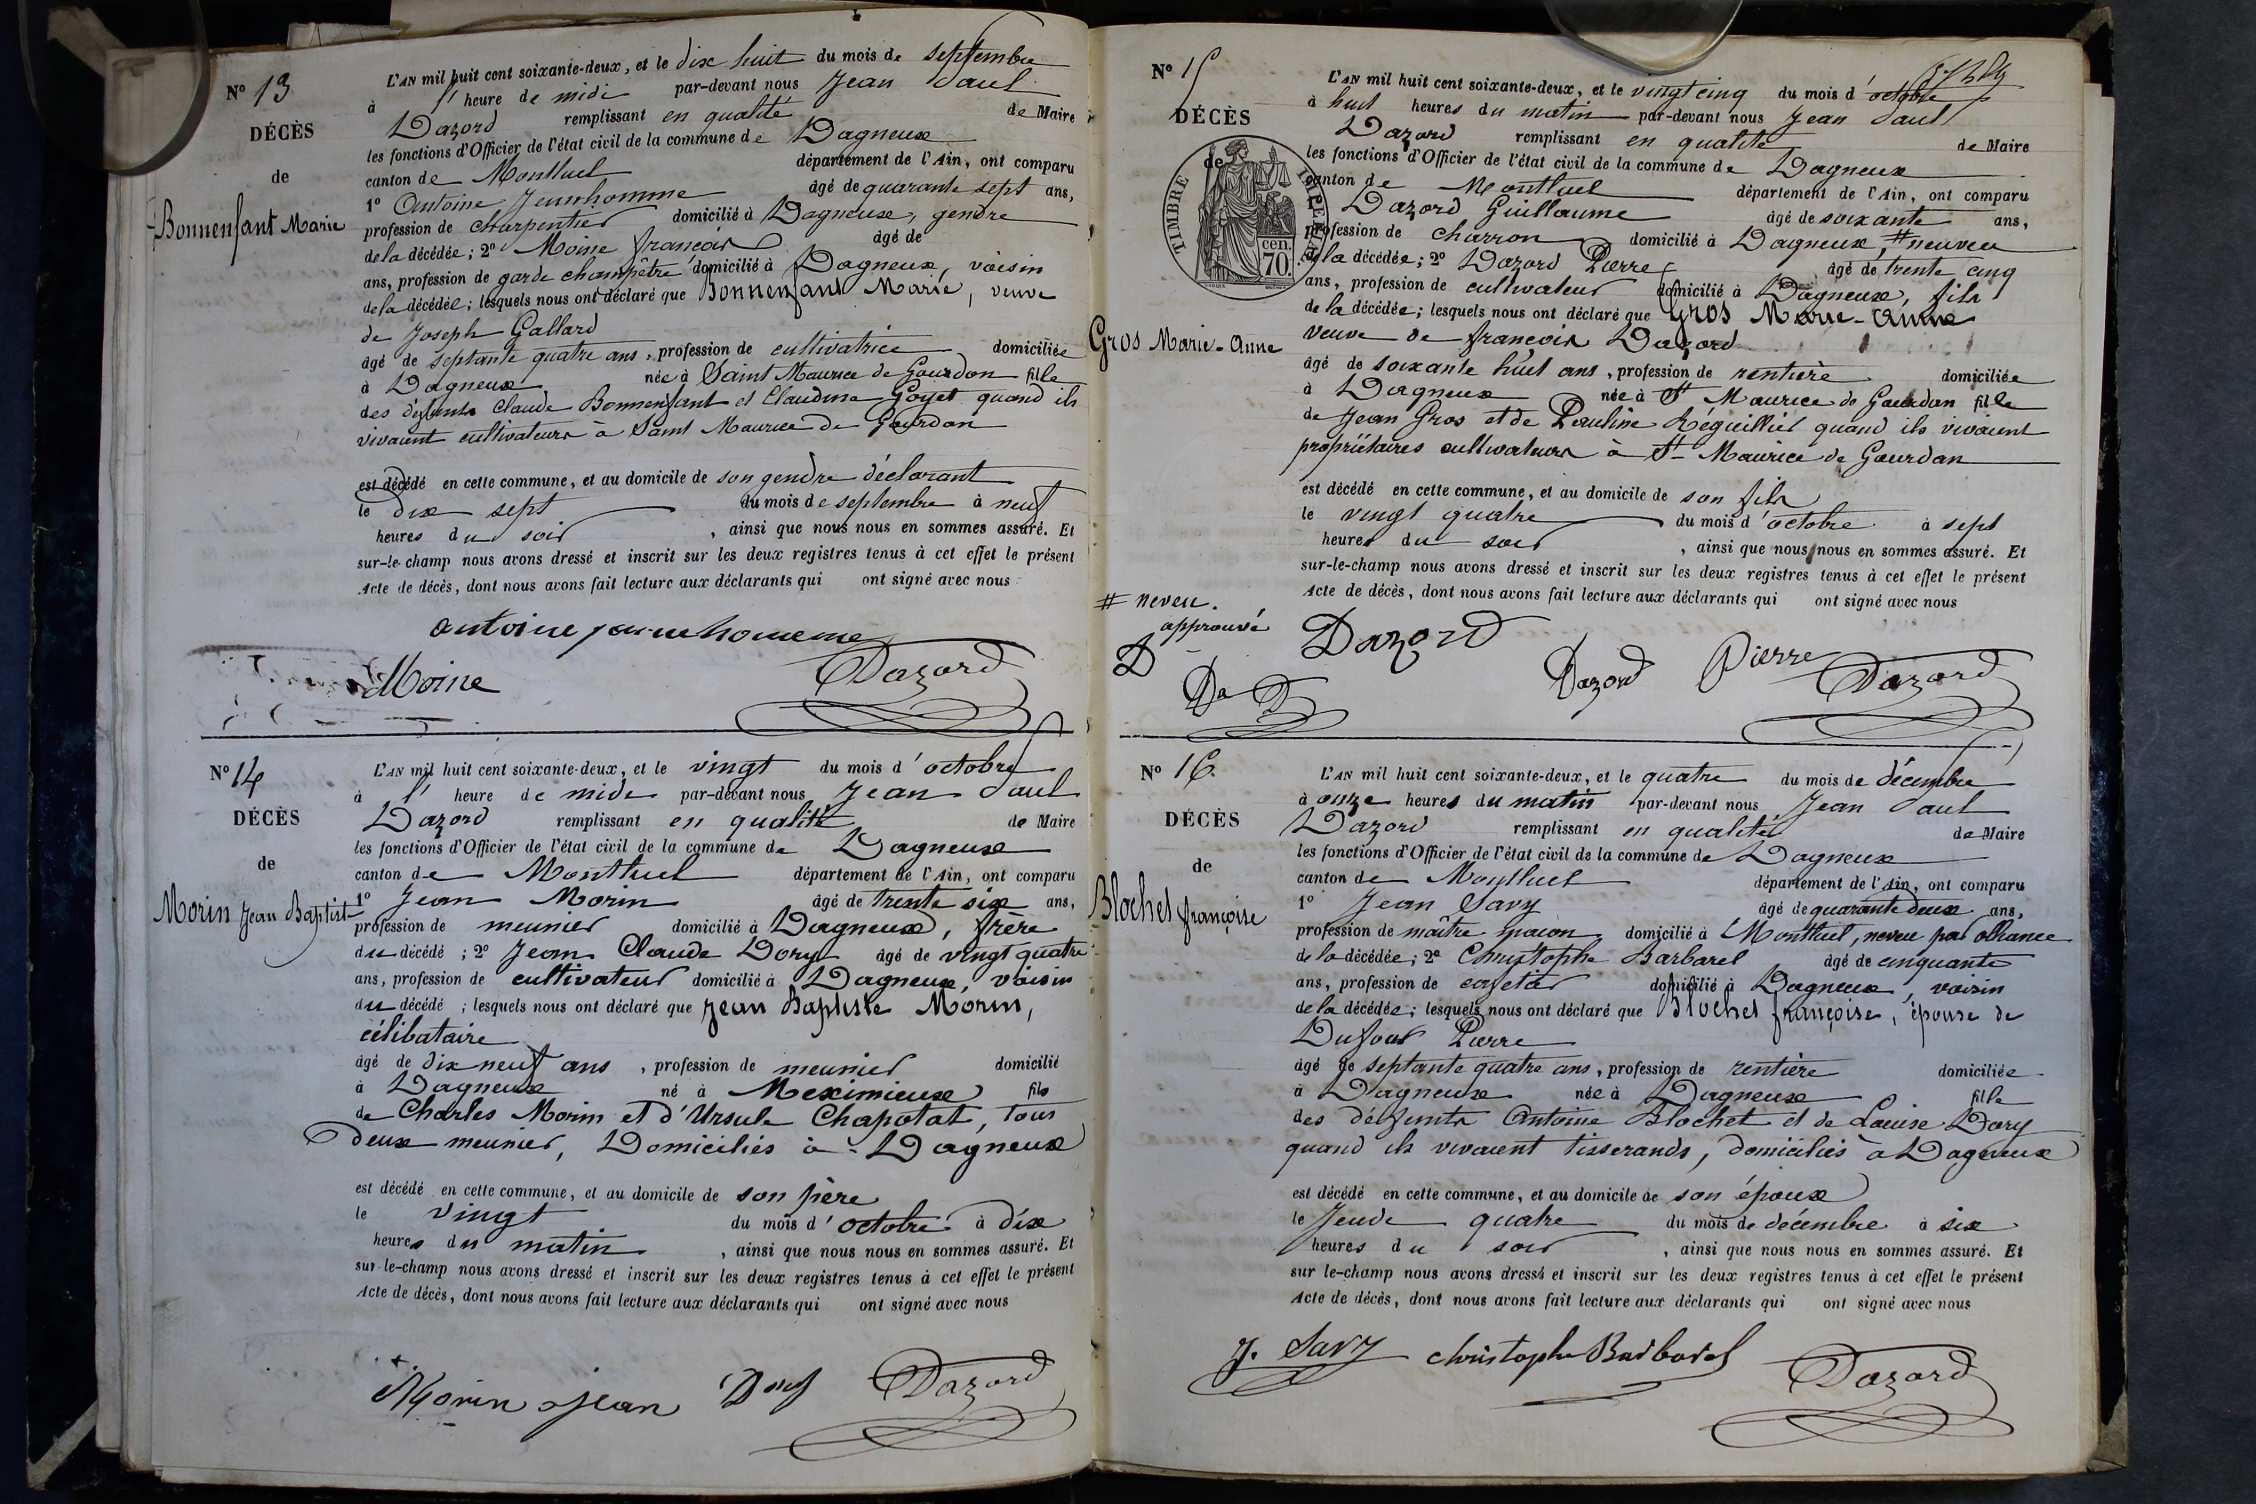 N° 13
DÉCÈS
de
Bonnenfant Marie
L'AN mil huit cent soixante-deux, et le dix huit du mois de septembre
à l'heure de midi par-devant nous Jean Paul
Dazord remplissant en qualité de Maire
les fonctions d'Officier de l'état civil de la commune de Dagneux
canton de Montluel département de l'Ain, ont comparu
1° Antoine Jeunhomme âgé de quarante sept ans,
profession de charpentier domicilié à Dagneux, gendre
de la décédée; 2° Moine françois âgé de
ans, profession de garde champêtre domicilié à Dagneux, voisin
de la décédée; lesquels nous ont déclaré que Bonnenfant Marie, veuve
de Joseph Gallard
âgé de septante quatre ans, profession de cultivatrice domiciliée
à Dagneux née à Saint Maurice de Gourdon fille
des défunts Claude Bonnenfant et Claudine Goyet quand ils
vivaient cultivateurs à Saint Maurice de Gourdon
est décédé en cette commune, et au domicile de son gendre déclarant
le dix sept du mois de septembre à neuf
heures du soir, ainsi que nous nous en sommes assuré. Et
sur-le-champ nous avons dressé et inscrit sur les deux registres tenus à cet effet le présent
Acte de décès, dont nous avons fait lecture aux déclarants qui ont signé avec nous
antoine jeunehomme
Moine Dazord
N° 14
DÉCÈS
de
Morin Jean Baptist
L'AN mil huit cent soixante-deux, et le vingt du mois d'octobre
à l'heure de midi par-devant nous Jean Paul
Dazord remplissant en qualité de Maire
les fonctions d'Officier de l'état civil de la commune de Dagneux
canton de Montluel département de l'Ain, ont comparu
1° Jean Morin âgé de trente six ans,
profession de meunier domicilié à Dagneux, frère
du décédé; 2° Jean Claude Dory âgé de vingt quatre
ans, profession de cultivateur domicilié à Dagneux, voisin
du décédé; lesquels nous ont déclaré que Jean Baptiste Morin,
célibataire
âgé de dix neuf ans, profession de meunier domicilié
à Dagneux né à Meximieux fils
de Charles Morin et d'Ursule Chapotat, tous
deux meunier, Domiciliés à Dagneux
est décédé en cette commune, et au domicile de son père
le vingt du mois d'octobre à dix
heures du matin, ainsi que nous nous en sommes assuré. Et
sur-le-champ nous avons dressé et inscrit sur les deux registres tenus à cet effet le présent
Acte de décès, dont nous avons fait lecture aux déclarants qui ont signé avec nous
Morin Jean Dory Dazord
N° 15
DÉCÈS
de
TIMBRE IMPERIAL
cen.
70.
Gros Marie-Anne
L'AN mil huit cent soixante-deux, et le vingt cinq du mois d'octobre
à huit heures du matin par-devant nous Jean Paul
Dazord remplissant en qualité de Maire
les fonctions d'Officier de l'état civil de la commune de Dagneux
canton de Montluel département de l'Ain, ont comparu
Dazord Guillaume âgé de soixante ans,
profession de charron domicilié à Dagneux, # neuveu
de la décédée; 2° Dazord Pierre âgé de trente cinq
ans, profession de cultivateur domicilié à Dagneux, fils
de la décédée; lesquels nous ont déclaré que Gros Marie-Anne
veuve de françois Dazord
âgé de soixante huit ans, profession de rentière domiciliée
à Dagneux née à St Maurice de Gourdan fille
de Jean Gros et de Pauline Réguillier quand ils vivaient
propriétaires cultivateurs à St Maurice de Gourdan
est décédé en cette commune, et au domicile de son fils
le vingt quatre du mois d'octobre à sept
heures du soir, ainsi que nous nous en sommes assuré. Et
sur-le-champ nous avons dressé et inscrit sur les deux registres tenus à cet effet le présent
Acte de décès, dont nous avons fait lecture aux déclarants qui ont signé avec nous
# neveu.
approuvé
D Dazord
Da D Dazord Pierre Dazord
N° 16.
DÉCÈS
de
Blochet françoise
L'AN mil huit cent soixante-deux, et le quatre du mois de décembre
à onze heures du matin par-devant nous Jean Paul
Dazord remplissant en qualité de Maire
les fonctions d'Officier de l'état civil de la commune de Dagneux
canton de Montluel département de l'Ain, ont comparu
1° Jean Savy âgé de quarante deux ans,
profession de maître maçon domicilié à Montluel, neveu par alliance
de la décédée; 2° Christophe Barbarel âgé de cinquante
ans, profession de cafetier domicilié à Dagneux, voisin
de la décédée; lesquels nous ont déclaré que Blochet françoise, épouse de
Dufour Pierre
âgé de septante quatre ans, profession de rentière domiciliée
à Dagneux née à Dagneux fille
des défunts Antoine Blochet et de Louise Dory
quand ils vivaient tisserands, domiciliés à Dagneux
est décédé en cette commune, et au domicile de son époux
le Jeudi quatre du mois de décembre à six
heures du soir, ainsi que nous nous en sommes assuré. Et
sur le-champ nous avons dressé et inscrit sur les deux registres tenus à cet effet le présent
Acte de décès, dont nous avons fait lecture aux déclarants qui ont signé avec nous
J. Savy christophe Barbarel Dazord